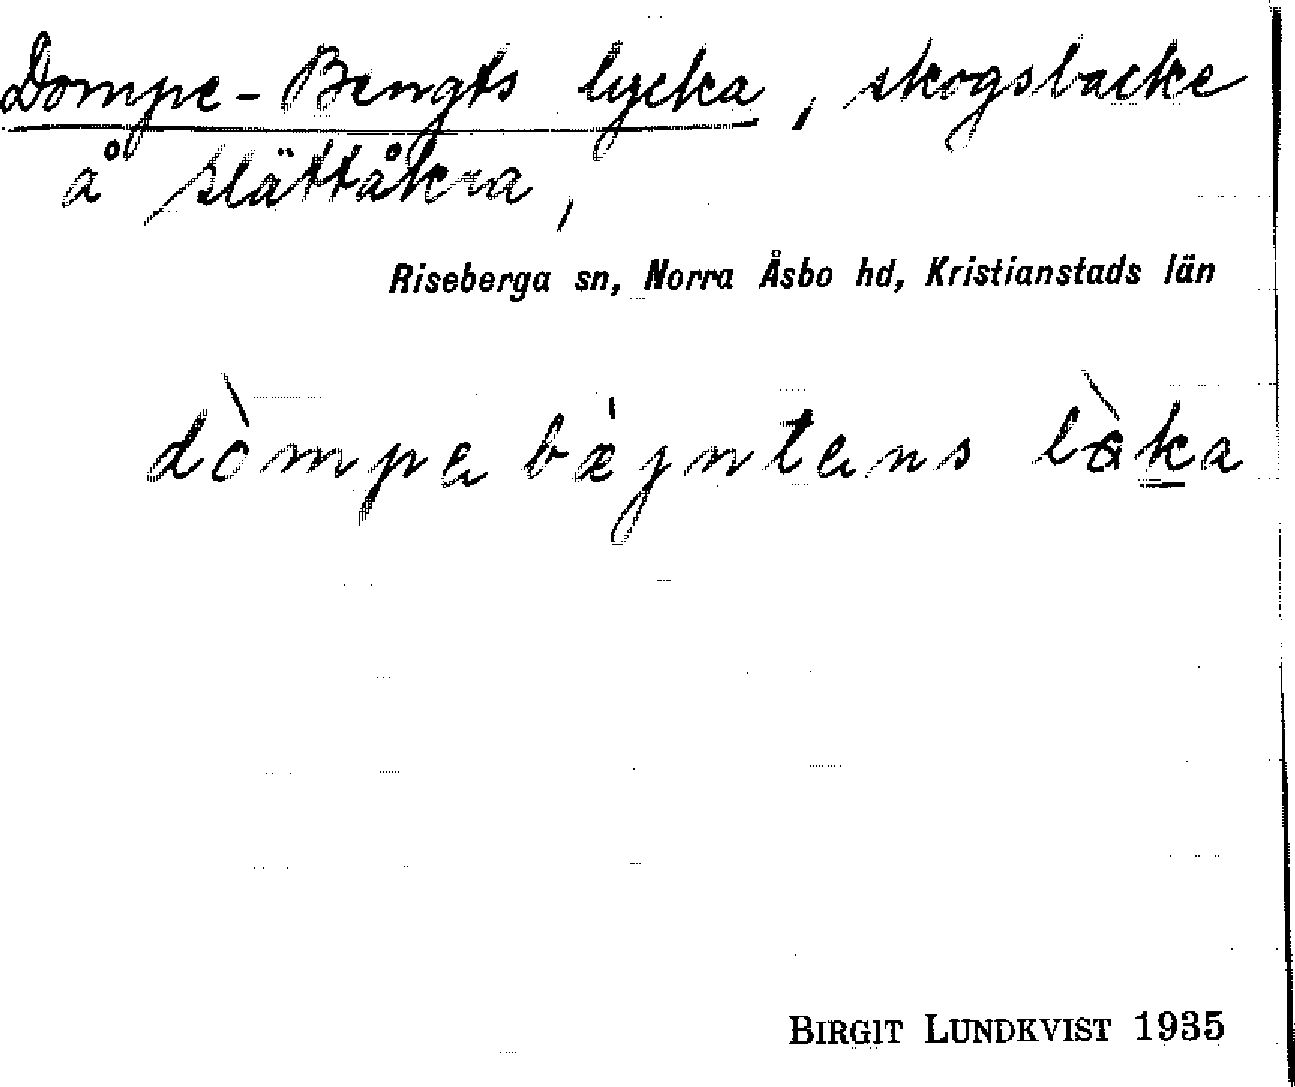 Dompe-Bengts lycka, skogsbacke
å Slättåkra,
Riseberga sn, Norra Åsbo hd, Kristianstads län
dòmpa bæ̀jntans lòka
BIRGIT LUNDKVIST 1935